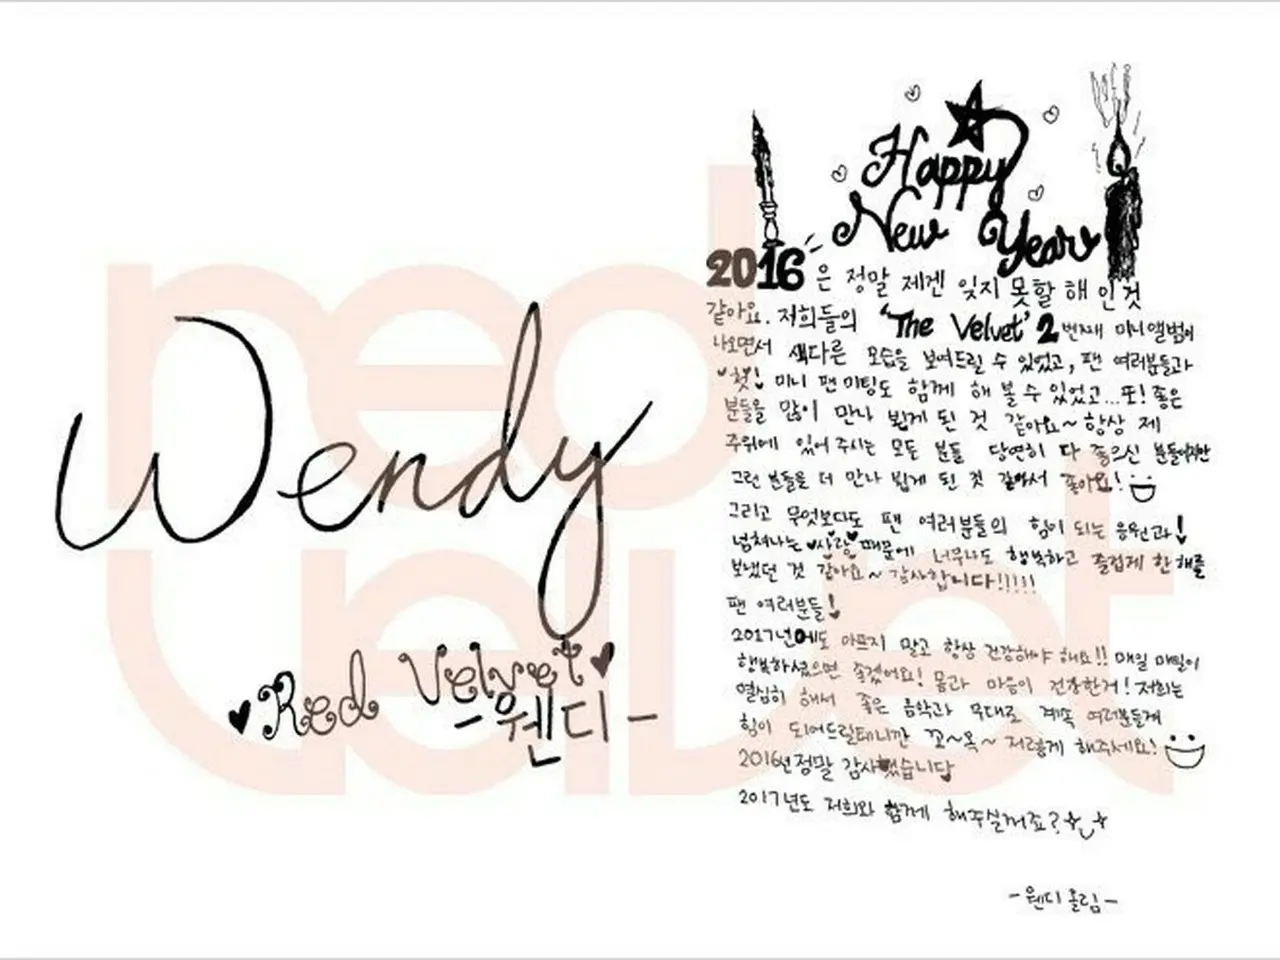 Wendy
♥Red Velvet♥
-웬디-
Happy
New Year
2016은 정말 제겐 잊지 못할 해인 것
같아요. 저희들의 'The Velvet' 2번째 미니앨범이
나오면서 색다른 모습을 보여드릴 수 있었고, 팬 여러분들과
첫! 미니 팬미팅도 함께 해 볼 수 있었고...또! 좋은
분들을 많이 만나 뵙게 된 것 같아요~ 항상 제
주위에 있어 주시는 모든 분들 당연히 다 좋으신 분들이지만
그런 분들을 더 만나 뵙게 된 것 같아서 좋아요!
그리고 무엇보다도 팬 여러분들의 힘이 되는 응원과!
넘쳐나는 ♥사랑♥ 때문에 너무나도 행복하고 즐겁게 한 해를
보냈던 것 같아요~ 감사합니다!!!!!
팬 여러분들!
2017년에도 아프지 말고 항상 건강해야 해요!! 매일 매일이
행복하셨으면 좋겠어요! 몸과 마음이 건강한거! 저희는
열심히 해서 좋은 음악과 무대로 계속 여러분들께
힘이 되어드릴테니깐 꼬~옥~ 저렇게 해주세요!
2016년 정말 감사했습니다
2017년도 저희와 함께 해주실꺼죠?
-웬디 올림-
red
velvet